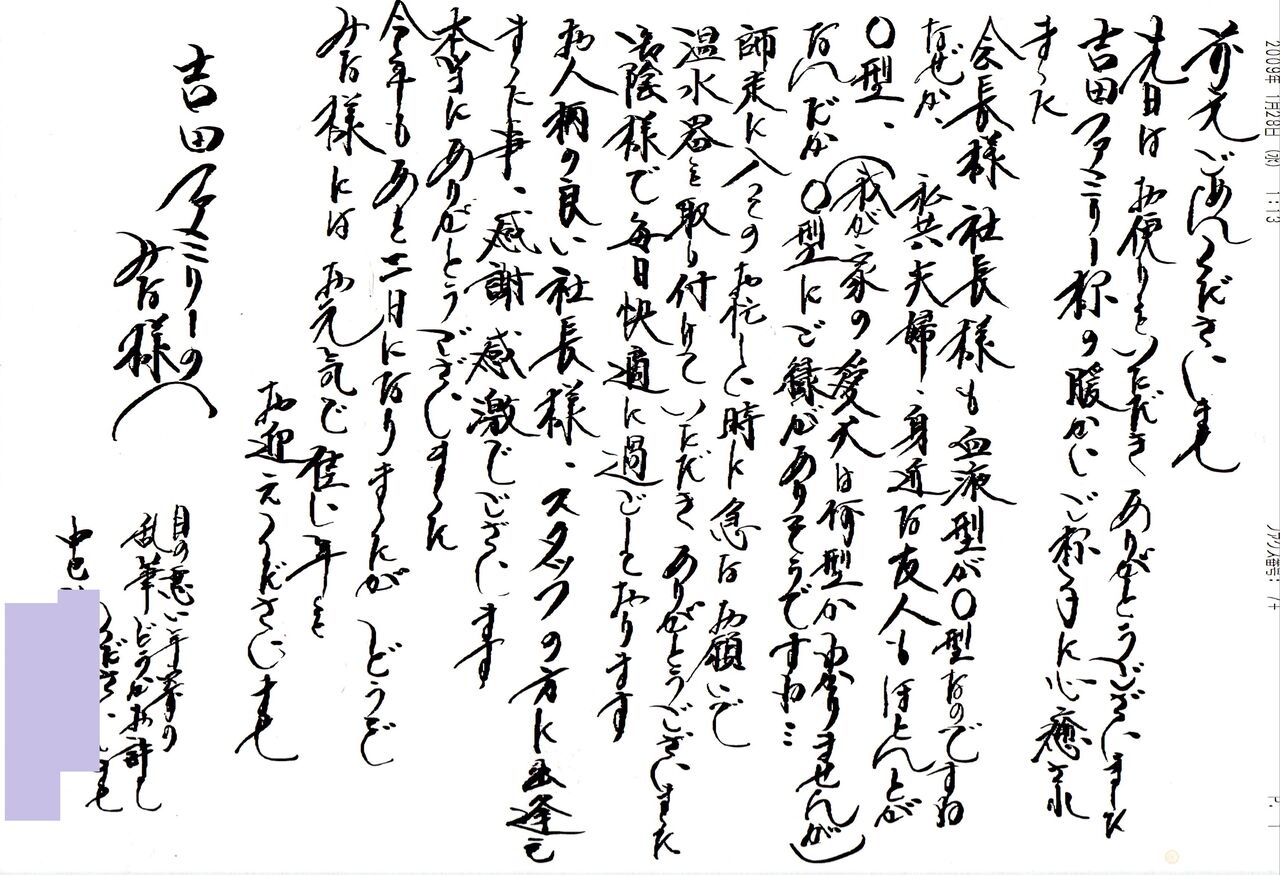 2009年 1月28日 (水) 11:13
ファクス番号:
P. 1
ごめんくださいませ
先日は お便りをいただき ありがとうございました
吉田ファミリー様の暖かいご様子に心癒され
ました
会長様 社長様も血液型がO型なのですね
なぜか 私共夫婦、身近な友人もほとんどが
O型、(我が家の愛犬は何型かわかりませんが)
なんだか O型にご縁がありそうですね…
師走に入ってのお忙しい時に急なお願いで
温水器を取り付けていただき ありがとうございました
お陰様で毎日快適に過ごしております
お人柄の良い社長様、スタッフの方に出逢え
ました事、感謝 感激でございます
本当にありがとうございました
今年もあと二日になりましたが どうぞ
みな様には お元気で佳い年を
お迎えくださいませ
吉田ファミリーの
みな様へ
目の悪い年寄りの
乱筆 どうかお許し
くださいませ